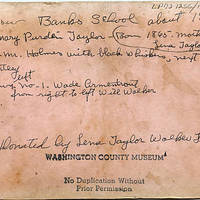 Banks School about 1
mary Purdin Taylor - Born 1865 - moth
Lena Taylor
mr. Holmes with black whiskers next
left
no. 1. Wade Armentrout
from right to left Will Walker
Donated by Lena Taylor Walker
WASHINGTON COUNTY MUSEUM
No Duplication Without
Prior Permission